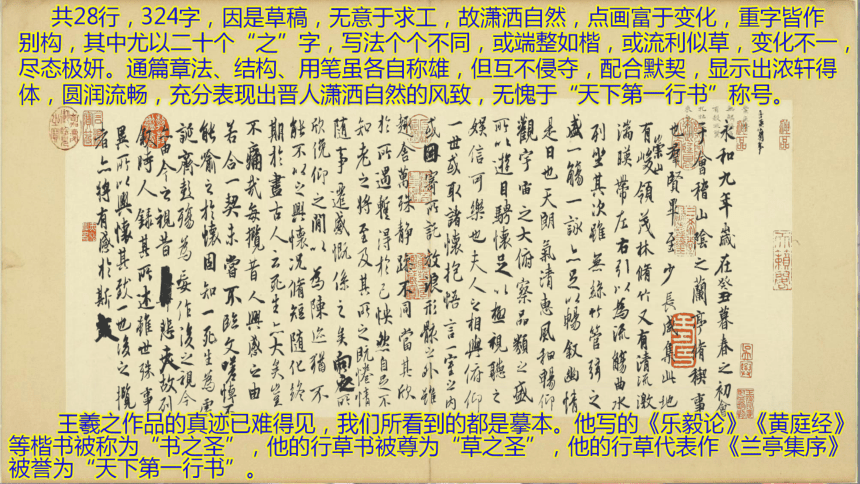 共28行，324字，因是草稿，无意于求工，故潇洒自然，点画富于变化，重字皆作
别构，其中尤以二十个“之”字，写法个个不同，或端整如楷，或流利似草，变化不一，
尽态极妍。通篇章法、结构、用笔虽各自称雄，但互不侵夺，配合默契，显示出浓轩得
体，圆润流畅，充分表现出晋人潇洒自然的风致，无愧于“天下第一行书”称号。
永和九年歲在癸丑暮春之初會
于會稽山陰之蘭亭脩稧事
也羣賢畢至少長咸集此地
有崇山峻領茂林脩竹又有清流激
湍暎帶左右引以為流觴曲水
列坐其次雖無絲竹管弦之
盛一觴一詠亦足以暢敘幽情
是日也天朗氣清惠風和暢仰
觀宇宙之大俯察品類之盛
所以遊目騁懷足以極視聽之
娛信可樂也夫人之相與俯仰
一世或取諸懷抱悟言一室之內
或因寄所託放浪形骸之外雖
趣舍萬殊靜躁不同當其欣
於所遇暫得於己怏然自足不
知老之將至及其所之既惓情
隨事遷感慨係之矣向之所
欣俛仰之間以為陳迹猶不
能不以之興懷況脩短隨化終
期於盡古人云死生亦大矣豈
不痛哉每攬昔人興感之由
若合一契未嘗不臨文嗟悼不
能喻之於懷固知一死生為虛
誕齊彭殤為妄作後之視今
亦由今之視昔悲夫故列
敘時人錄其所述雖世殊事
異所以興懷其致一也後之攬
者亦將有感於斯文
王羲之作品的真迹已难得见，我们所看到的都是摹本。他写的《乐毅论》《黄庭经》
等楷书被称为“书之圣”，他的行草书被尊为“草之圣”，他的行草代表作《兰亭集序》
被誉为“天下第一行书”。